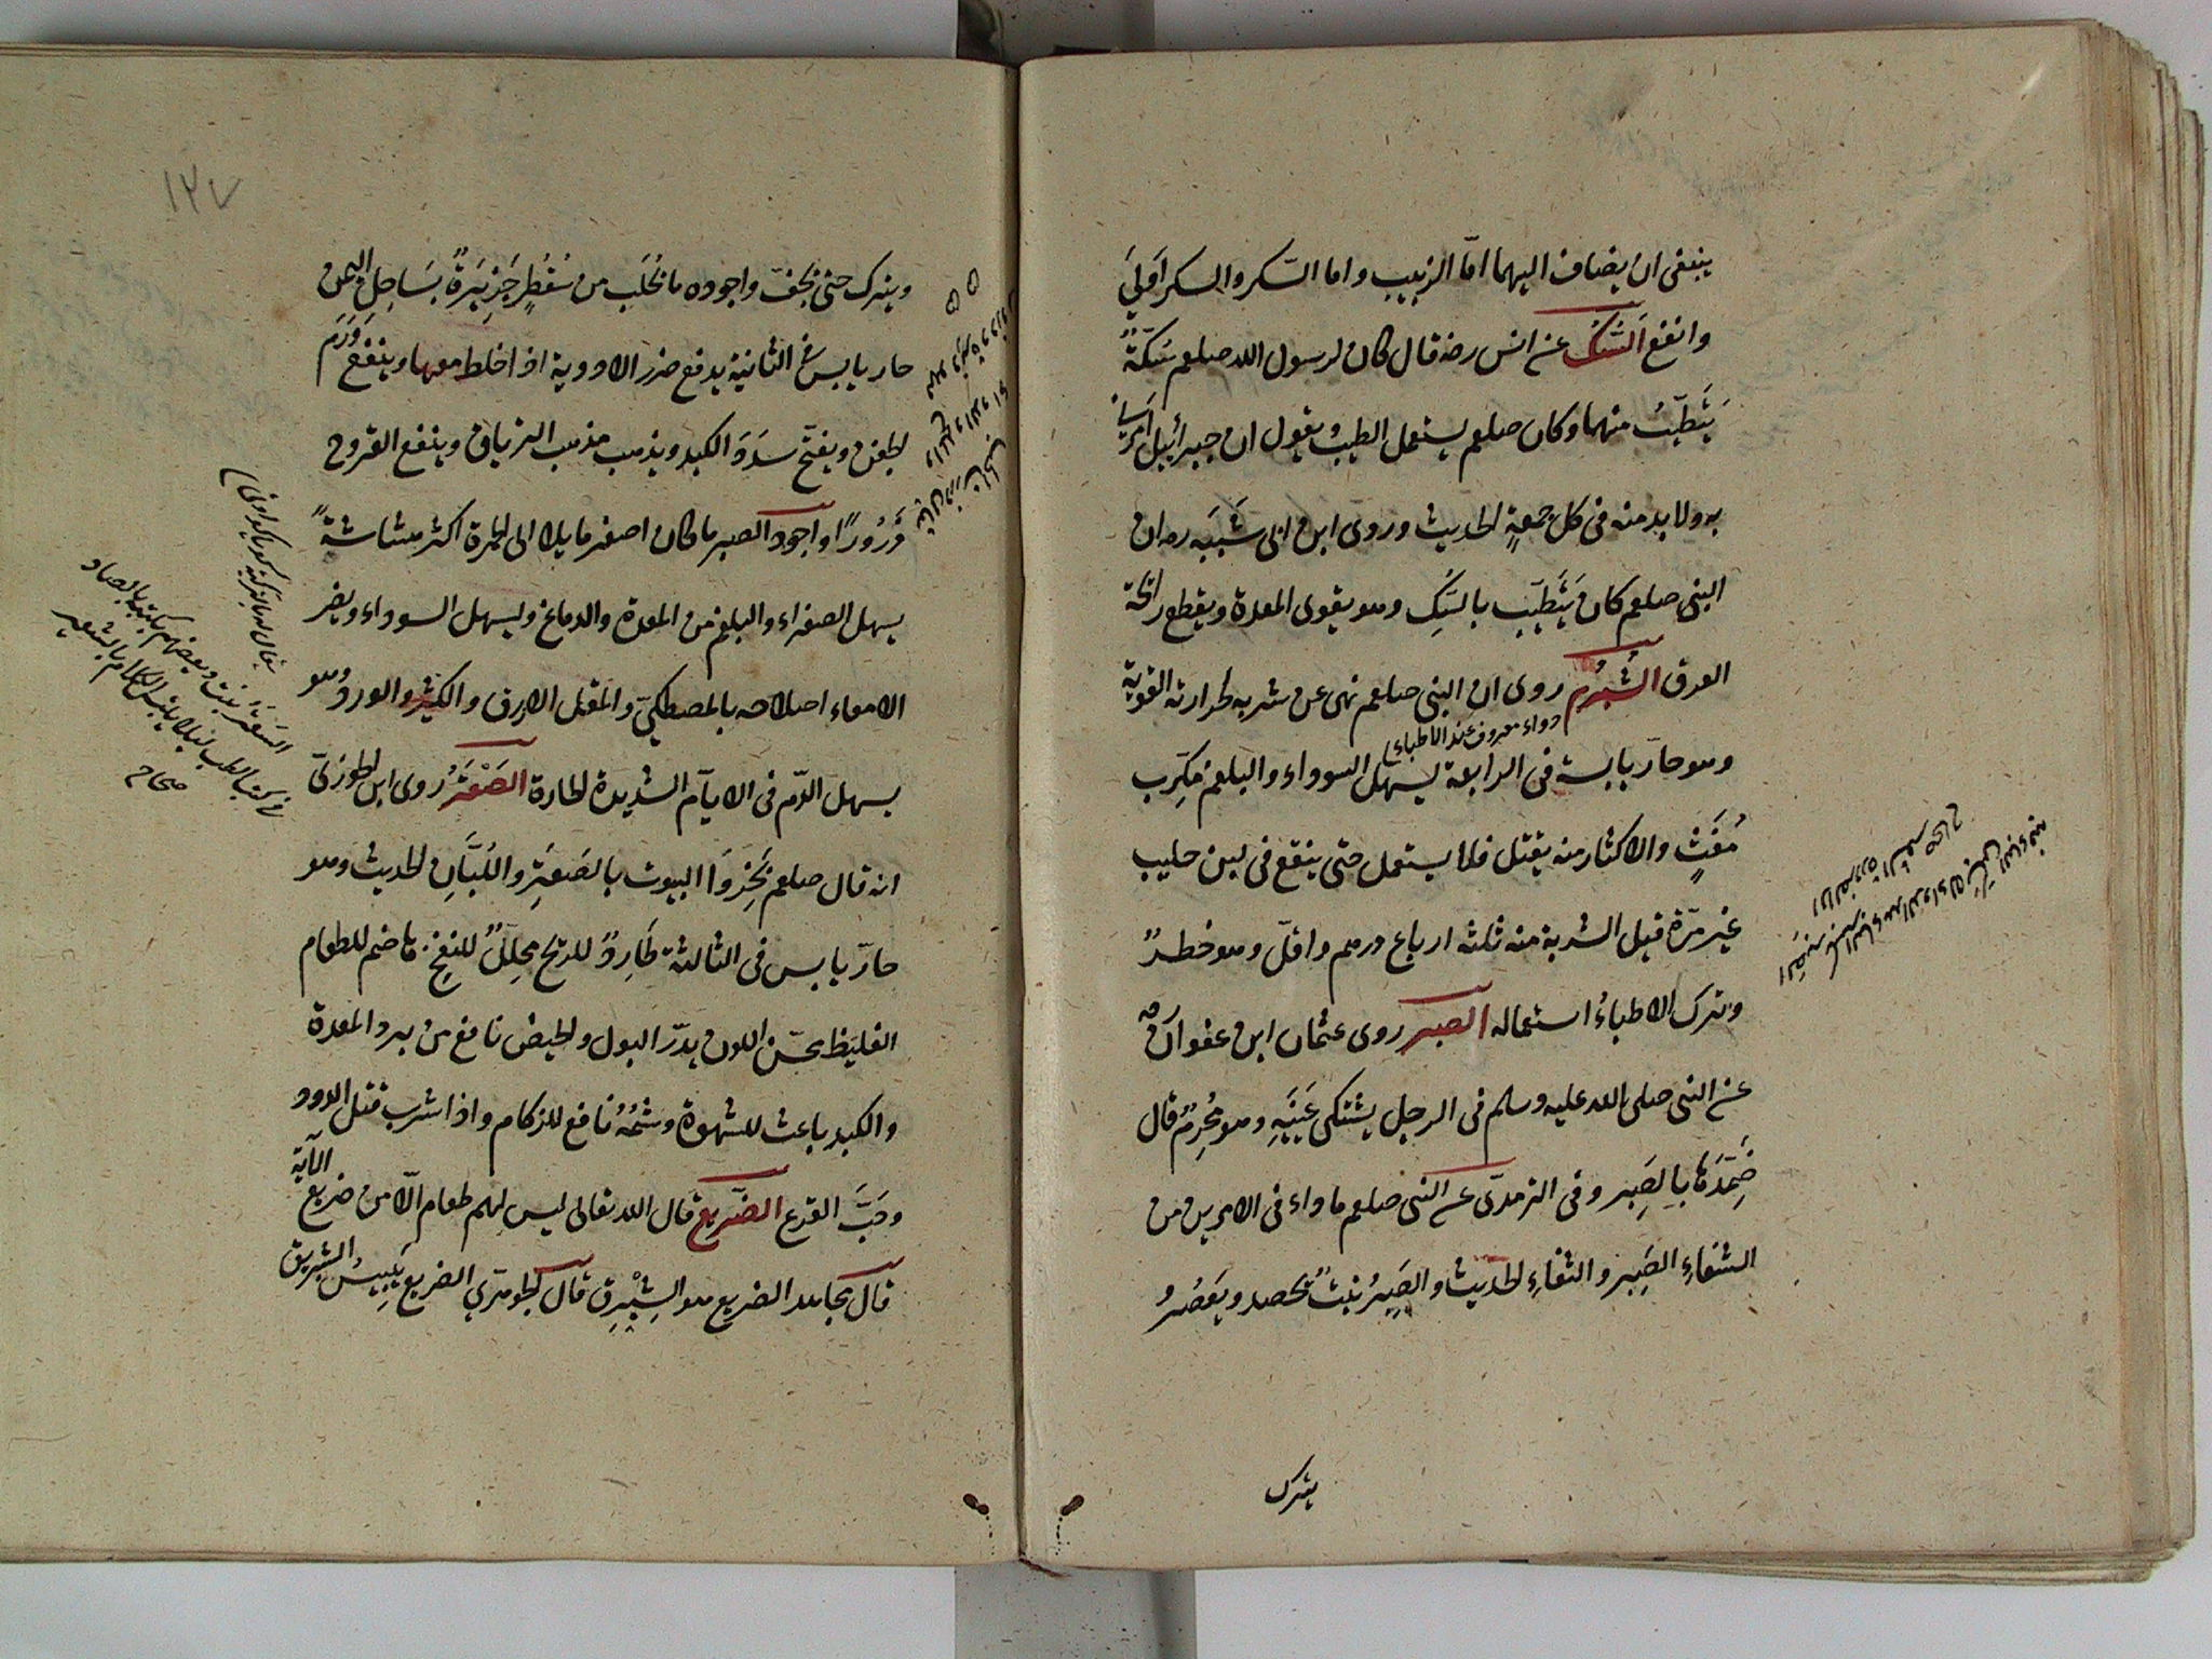 ينبغى ان يضاف اليهما امّا الزبيب واما السّكر والسكر اَولىَ
وانفع السُّكُّ عن انس رضه قال كان لرسول الله صلعم سَكّةٌ
يَتَطيّبُ منها وكان صلعم يستعمل الطيب ويقول ان جبرائيل امرنى
به ولا بد منه فى كل جمعةٍ الحديث وروى ابن ابى شَيبَه رہ ان
النبى صلعم كان يَتَطَيّب بالسُّكِ وهو يقوى المعدة ويقطع رائحة
العرق الشُبْرُم روى ان النبى صلعم نهى عن شربه لحرارته القوية
دواء معروف عند الاطباء
وهو حارّ يابسة فى الرابعة يسهل السوداء والبلغم مكرِب
مُغَثٍ والاكثار منه يقتل فلا يستعمل حتى ينقع فى لبن حليب
غير مرّة قيل الشربة منه ثلثه ارباع درهم واقلّ وهو خطرٌ
وترك الاطباءُ استعماله الصبر روى عثمان ابن عفوان رضه
عن النبى صلى الله عليه وسلم فى الرجل يشتكى عَينَيهِ وهو مُحرِمٌ قال
ضَمِّدَها بالصَبِر وفى الترمدىّ عن النبى صلعم ماداء فى الامرين من
الشفاءِ الصَبِر والثفاءِ الحديث والصَبِرُ نبتٌ يحصد ويَعصُرُ
يترك
١٢٧
ويترك حتى يجفّ واجوده ما يُجلَب من سُقُطرِ جَزِيَرةٌ بسَاحِلِ اليمن
حار يابس فى الثانية يدفع ضرر الادوية اذ اخلط معها وينفع وَرَمَ
الجفن ويفتّح سَدَدَ الكبد ويذهب مذهب الترياق وينفع القروح
ذَرُورًا واجود الصبر ما كان اصفر مايلا الى الحمرة اكثر هشاشةً
يسهل الصفراء والبلغم من المعدة والدماغ ويسهل السوداء ويضر
الامعاء اصلاحه بالمصطكىّ والمقل الازرق والكثير والورد وهو
يسهل الدّم فى الايّام الشديدة الحارة الصَعْتَرُ روى ابن الجوزىّ
انه قال صلعم بَخِّرُوَا البيوت بالصَعتَرِ واللُبَّانِ الحديث وهو
حارّ يابس فى الثالثة طَارِدٌ للريح محلِّلٌ للنفخ هاضم للطعام
الغليظ يحسّن اللون يدرّ البول والحيض نافع من برد المعدة
والكبد باعث للشهوة وشمُّهُ نافع للزكام واذا شرب قتل الدود
وحَبَّ القرع الضّريع قال الله تعالى ليس لهم طعام الّا من ضريع الآية
قال مجاهد الضريع هو الشِبْرِق قال الجوهرّي الضريع يَبِيسُ الشبرق
السَعتَرُ نبت وبعضهم يكتبه بالصاد
فى كتب الطب ليلا يلتبس الكلام بالشعير
صحاح